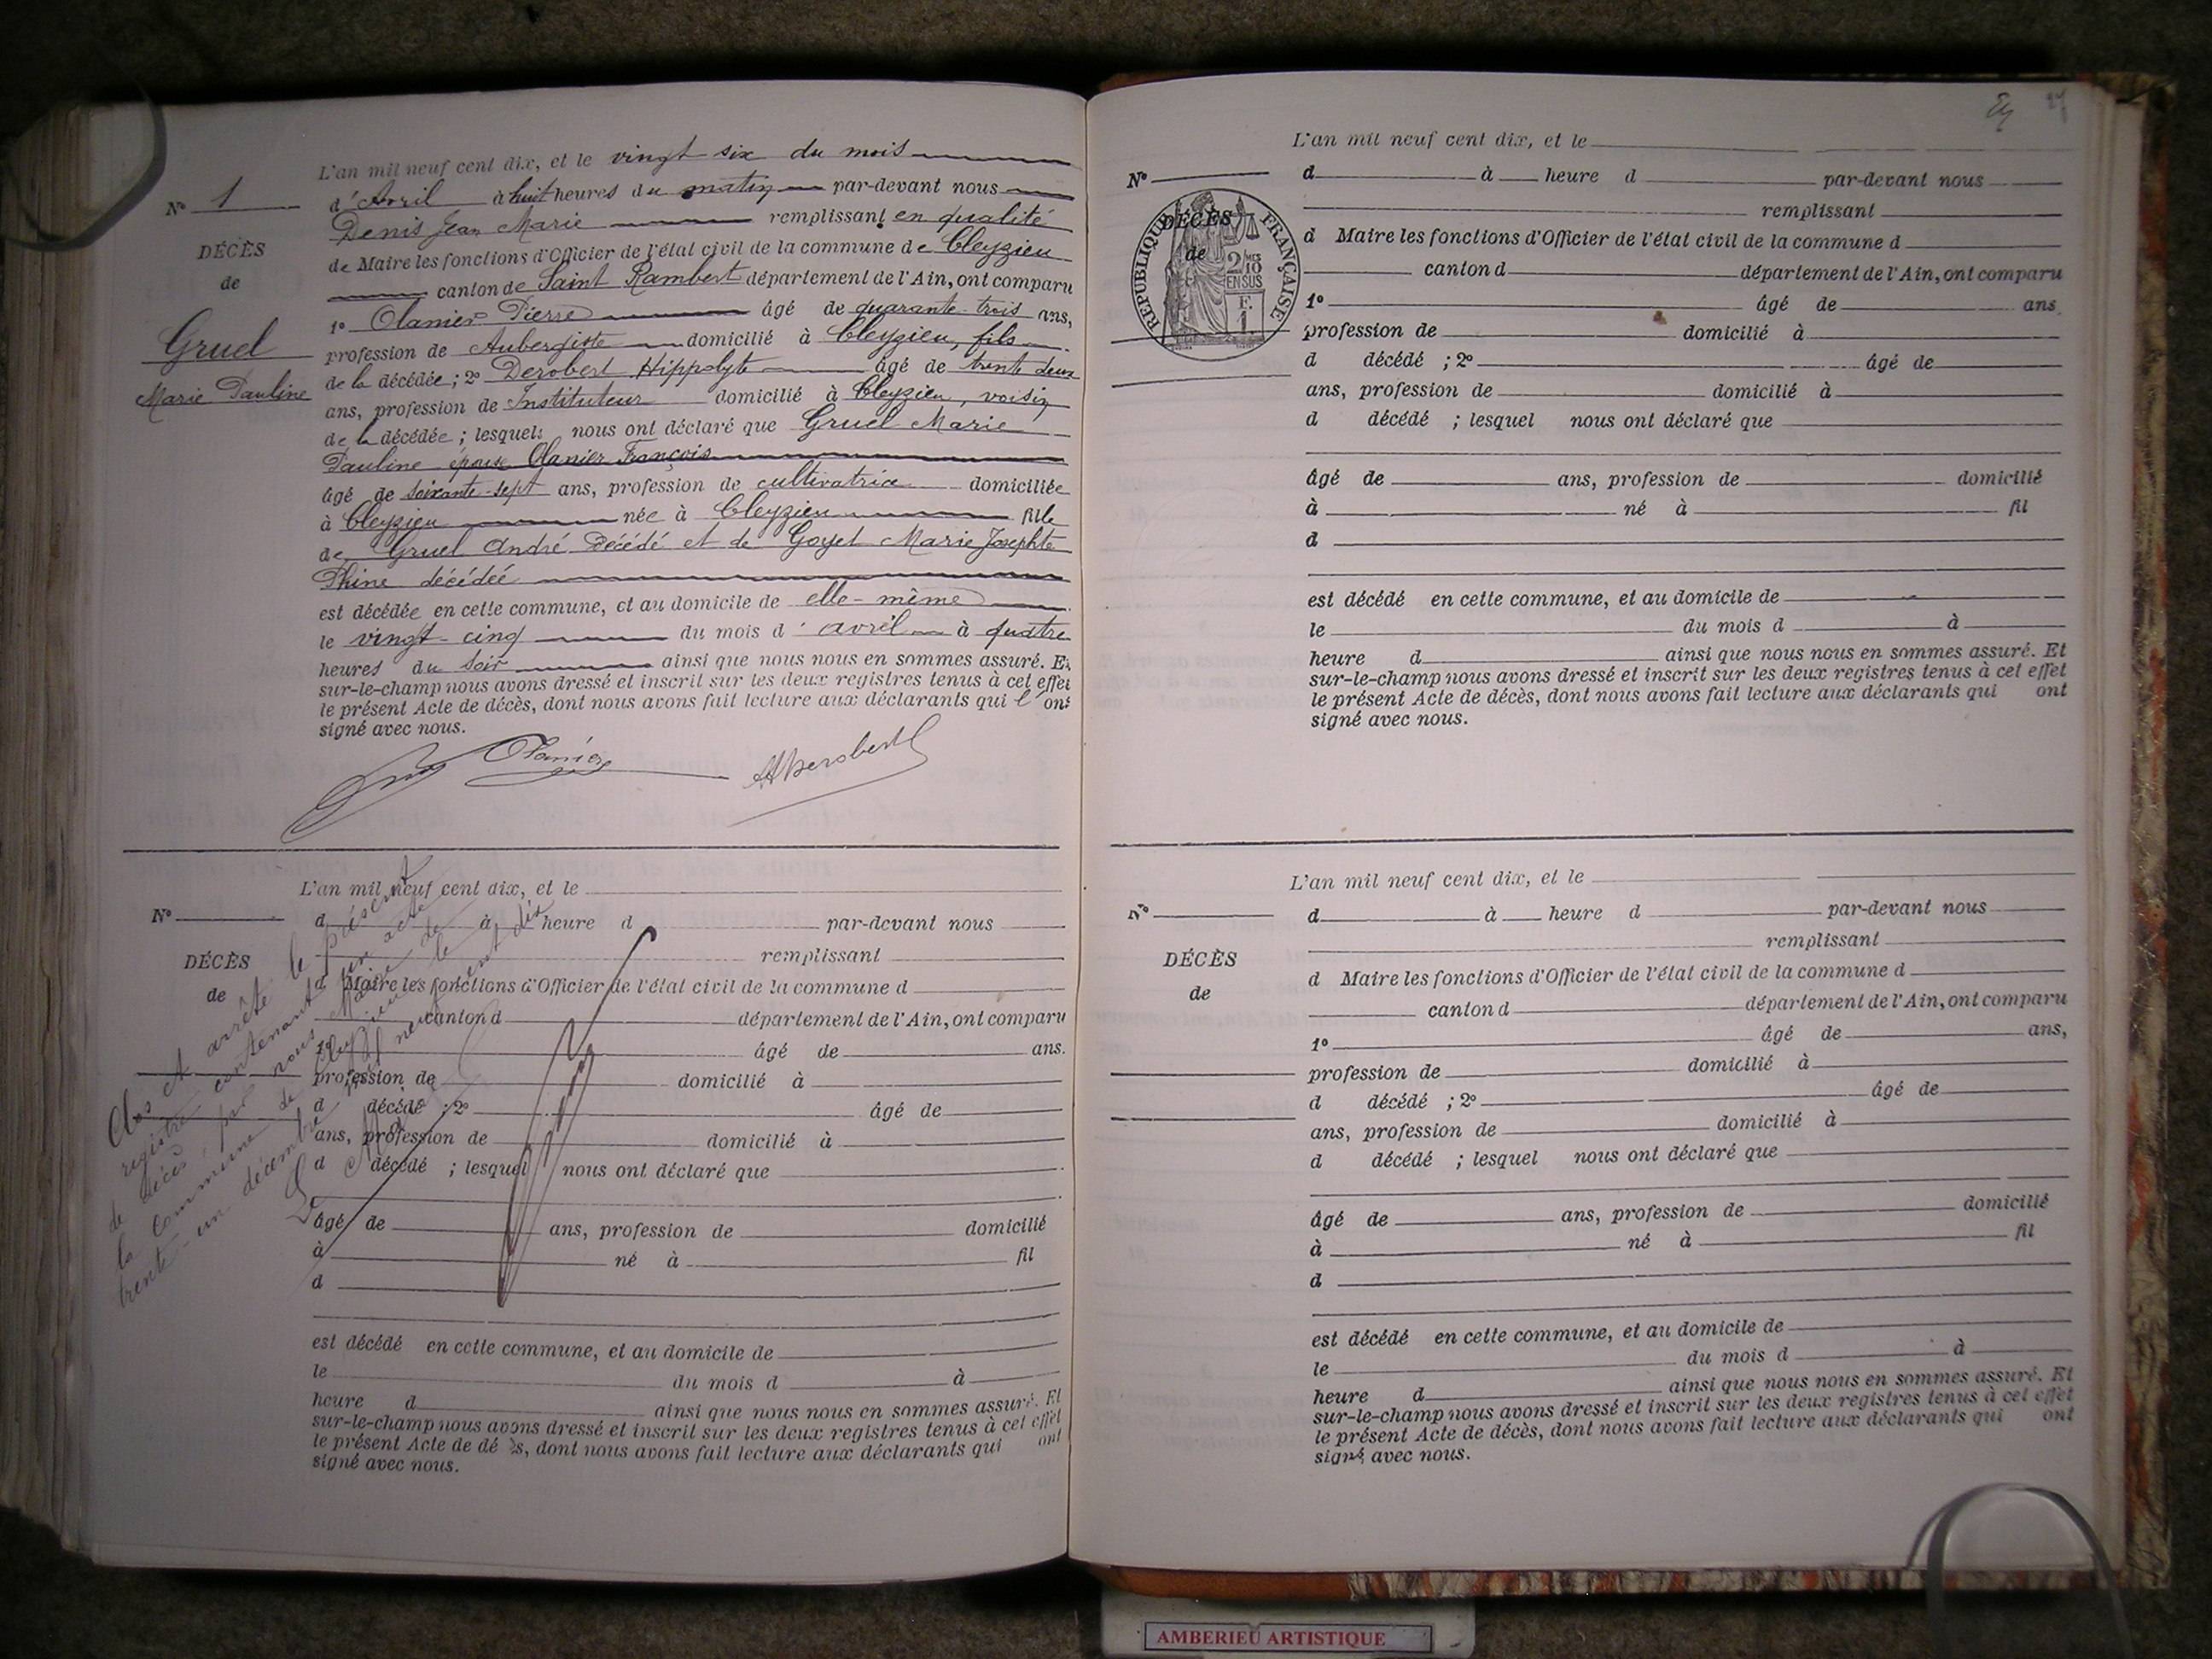 L'an mil neuf cent dix, et le vingt six du mois
N° 1
d'Avril à huit heures du matin par-devant nous
Denis Jean Marie remplissant en qualité
DÉCÈS
de Maire les fonctions d'Officier de l'état civil de la commune de Cleyzieu
de
canton de Saint Rambert département de l'Ain, ont comparu
1° Olanier Pierre âgé de quarante-trois ans,
Gruel
profession de Aubergiste domicilié à Cleyzieu, fils
Marie Pauline
de la décédée ; 2° Derobert Hippolyte âgé de trente deux
ans, profession de Instituteur domicilié à Cleyzieu, voisin
de la décédée ; lesquels nous ont déclaré que Gruel Marie
Pauline épouse Olanier François
âgé de soixante-sept ans, profession de cultivatrice domiciliée
à Cleyzieu née à Cleyzieu fille
de Gruel André Décédé et de Goyet Marie Josephte
Phine décédée
est décédée en cette commune, et au domicile de elle-même
le vingt-cinq du mois d'avril à quatre
heures du soir ainsi que nous nous en sommes assuré. Et
sur-le-champ nous avons dressé et inscrit sur les deux registres tenus à cet effet
le présent Acte de décès, dont nous avons fait lecture aux déclarants qui l'ont
signé avec nous.
Olanier HDerobert
L'an mil neuf cent dix, et le
N°
d à heure d par-devant nous
remplissant
DÉCÈS
de
d Maire les fonctions d'Officier de l'état civil de la commune d
canton d département de l'Ain, ont comparu
1° âgé de ans.
profession de domicilié à
d décédé ; 2° âgé de
ans, profession de domicilié à
d décédé ; lesquel nous ont déclaré que
âgé de ans, profession de domicilié
à né à fil
d
est décédé en cette commune, et au domicile de
le du mois d à
heure d ainsi que nous nous en sommes assuré. Et
sur-le-champ nous avons dressé et inscrit sur les deux registres tenus à cet effet
le présent Acte de décès, dont nous avons fait lecture aux déclarants qui ont
signé avec nous.
Clos et arrêté le présent
registre contenant un acte
de décès, par nous Maire de
la commune de Cleyzieu le
trente-un décembre mil neuf cent dix
Le Maire
L'an mil neuf cent dix, et le
N°
d à heure d par-devant nous
remplissant
RÉPUBLIQUE FRANÇAISE
2/10 MES
EN SUS
F. 1.
DÉCÈS
de
d Maire les fonctions d'Officier de l'état civil de la commune d
canton d département de l'Ain, ont comparu
1° âgé de ans.
profession de domicilié à
d décédé ; 2° âgé de
ans, profession de domicilié à
d décédé ; lesquel nous ont déclaré que
âgé de ans, profession de domicilié
à né à fil
d
est décédé en cette commune, et au domicile de
le du mois d à
heure d ainsi que nous nous en sommes assuré. Et
sur-le-champ nous avons dressé et inscrit sur les deux registres tenus à cet effet
le présent Acte de décès, dont nous avons fait lecture aux déclarants qui ont
signé avec nous.
L'an mil neuf cent dix, et le
N°
d à heure d par-devant nous
remplissant
DÉCÈS
de
d Maire les fonctions d'Officier de l'état civil de la commune d
canton d département de l'Ain, ont comparu
1° âgé de ans,
profession de domicilié à
d décédé ; 2° âgé de
ans, profession de domicilié à
d décédé ; lesquel nous ont déclaré que
âgé de ans, profession de domicilié
à né à fil
d
est décédé en cette commune, et au domicile de
le du mois d à
heure d ainsi que nous nous en sommes assuré. Et
sur-le-champ nous avons dressé et inscrit sur les deux registres tenus à cet effet
le présent Acte de décès, dont nous avons fait lecture aux déclarants qui ont
signé avec nous.
AMBERIEU ARTISTIQUE